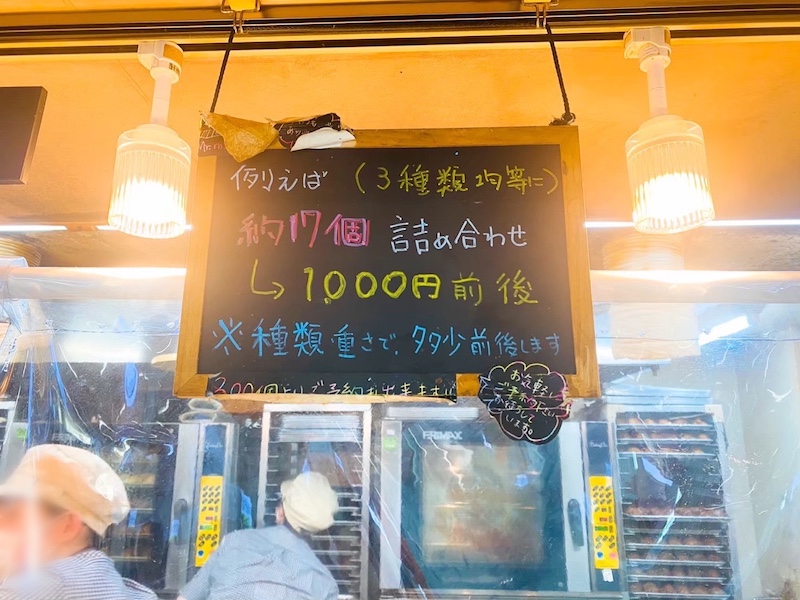 例えば（3種類均等に）
約17個 詰め合わせ
↳ 1,000円前後
※種類重さで、多少前後します
200個よりご予約お出来ます
お気軽に
FRIMAX